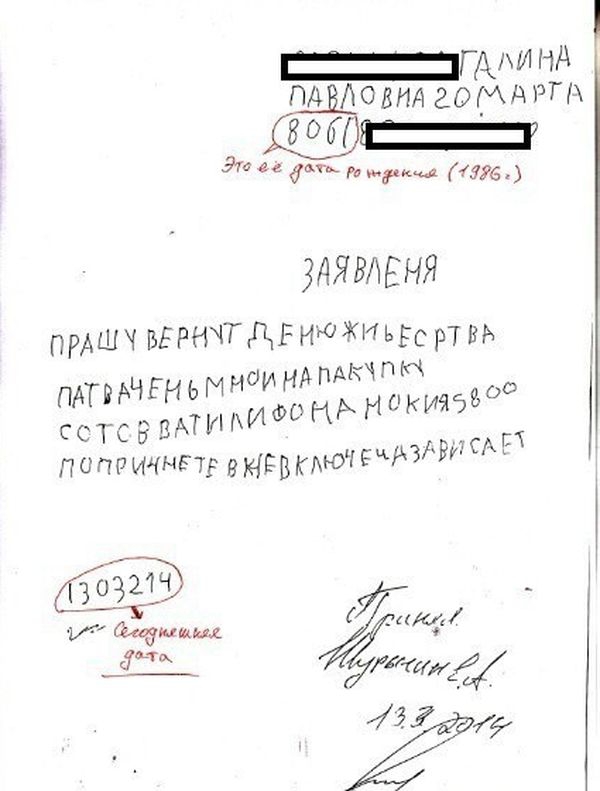 ГАЛИНА
ПАВЛОВНА 20 МАРТА
8061
Это её дата рождения (1986г)
ЗАЯВЛЕНЯ
ПРАШУ ВЕРНУТ ДЕНЮЖИЬЕСРТВА
ПАТВАЧЕНЬМНОИНАПАКУПКУ
СОТОВВАТИЛИФОНАНОКИЯ5800
ПОПРИЧНЕТЕВЖЕВКЛЮЧЕЧАЗАВИСАЕТ
1303214
Сегоднешнея
дата
Принял
Шурыгин Е.А.
13.3.2014